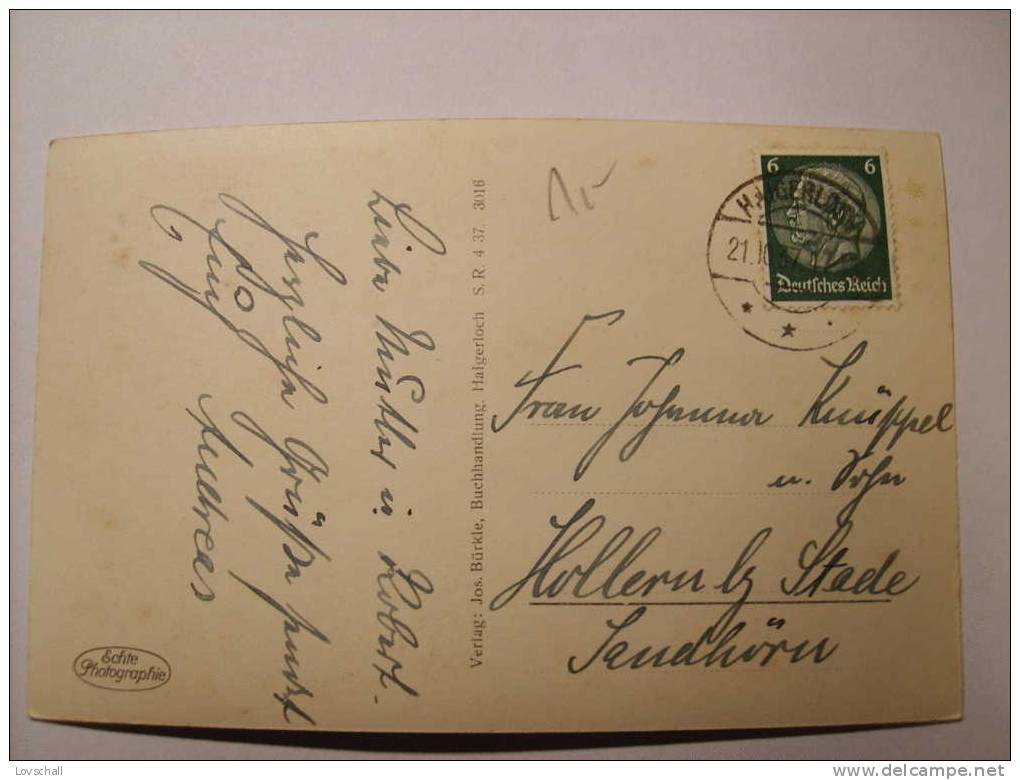 Liebe Mutter u. Robert.
Herzliche Grüße sendet
Andreas
Echte
Photographie
Verlag: Jos. Bürkle, Buchhandlung, Haigerloch S. R. 4 37. 3016
6 6
Deutsches Reich
HAIGERLOCH
21.10.37
Frau Johanna Knüppel
u. Sohn
Hollern b/ Stade
Sandhörn
Lovschall
www.delcampe.net